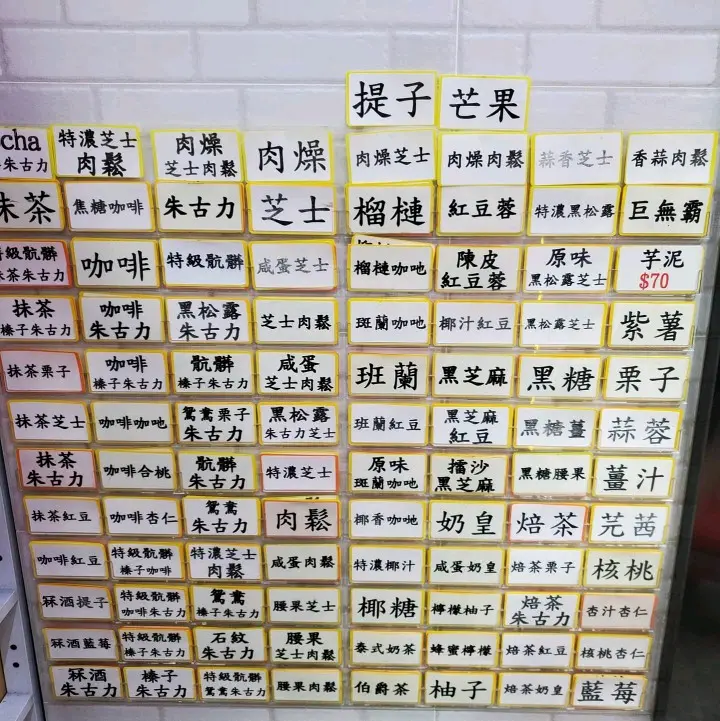 提子
芒果
cha
朱古力
特濃芝士
肉鬆
肉燥
芝士肉鬆
肉燥
肉燥芝士
肉燥肉鬆
蒜香芝士
香蒜肉鬆
抹茶
焦糖咖啡
朱古力
芝士
榴槤
紅豆蓉
特濃黑松露
巨無霸
特級骯髒
抹茶朱古力
咖啡
特級骯髒
咸蛋芝士
榴槤咖吔
陳皮
紅豆蓉
原味
黑松露芝士
芋泥
$70
抹茶
榛子朱古力
咖啡
朱古力
黑松露
朱古力
芝士肉鬆
斑蘭咖吔
椰汁紅豆
黑松露芝士
紫薯
抹茶栗子
咖啡
榛子朱古力
骯髒
榛子朱古力
咸蛋
芝士肉鬆
班蘭
黑芝麻
黑糖
栗子
抹茶芝士
咖啡咖吔
鴛鴦栗子
朱古力
黑松露
朱古力芝士
班蘭紅豆
黑芝麻
紅豆
黑糖薑
蒜蓉
抹茶
朱古力
咖啡合桃
骯髒
朱古力
特濃芝士
原味
斑蘭咖吔
擂沙
黑芝麻
黑糖腰果
薑汁
抹茶紅豆
咖啡杏仁
鴛鴦
朱古力
肉鬆
椰香咖吔
奶皇
焙茶
芫茜
咖啡紅豆
特級骯髒
榛子咖啡
特濃芝士
肉鬆
咸蛋肉鬆
特濃椰汁
咸蛋奶皇
焙茶栗子
核桃
冧酒提子
特級骯髒
咖啡朱古力
鴛鴦
榛子朱古力
腰果芝士
椰糖
檸檬柚子
焙茶
朱古力
杏汁杏仁
冧酒藍莓
特級骯髒
榛子朱古力
石紋
朱古力
腰果
芝士肉鬆
泰式奶茶
蜂蜜檸檬
焙茶紅豆
核桃杏仁
冧酒
朱古力
榛子
朱古力
特級骯髒
鴛鴦朱古力
腰果肉鬆
伯爵茶
柚子
焙茶奶皇
藍莓